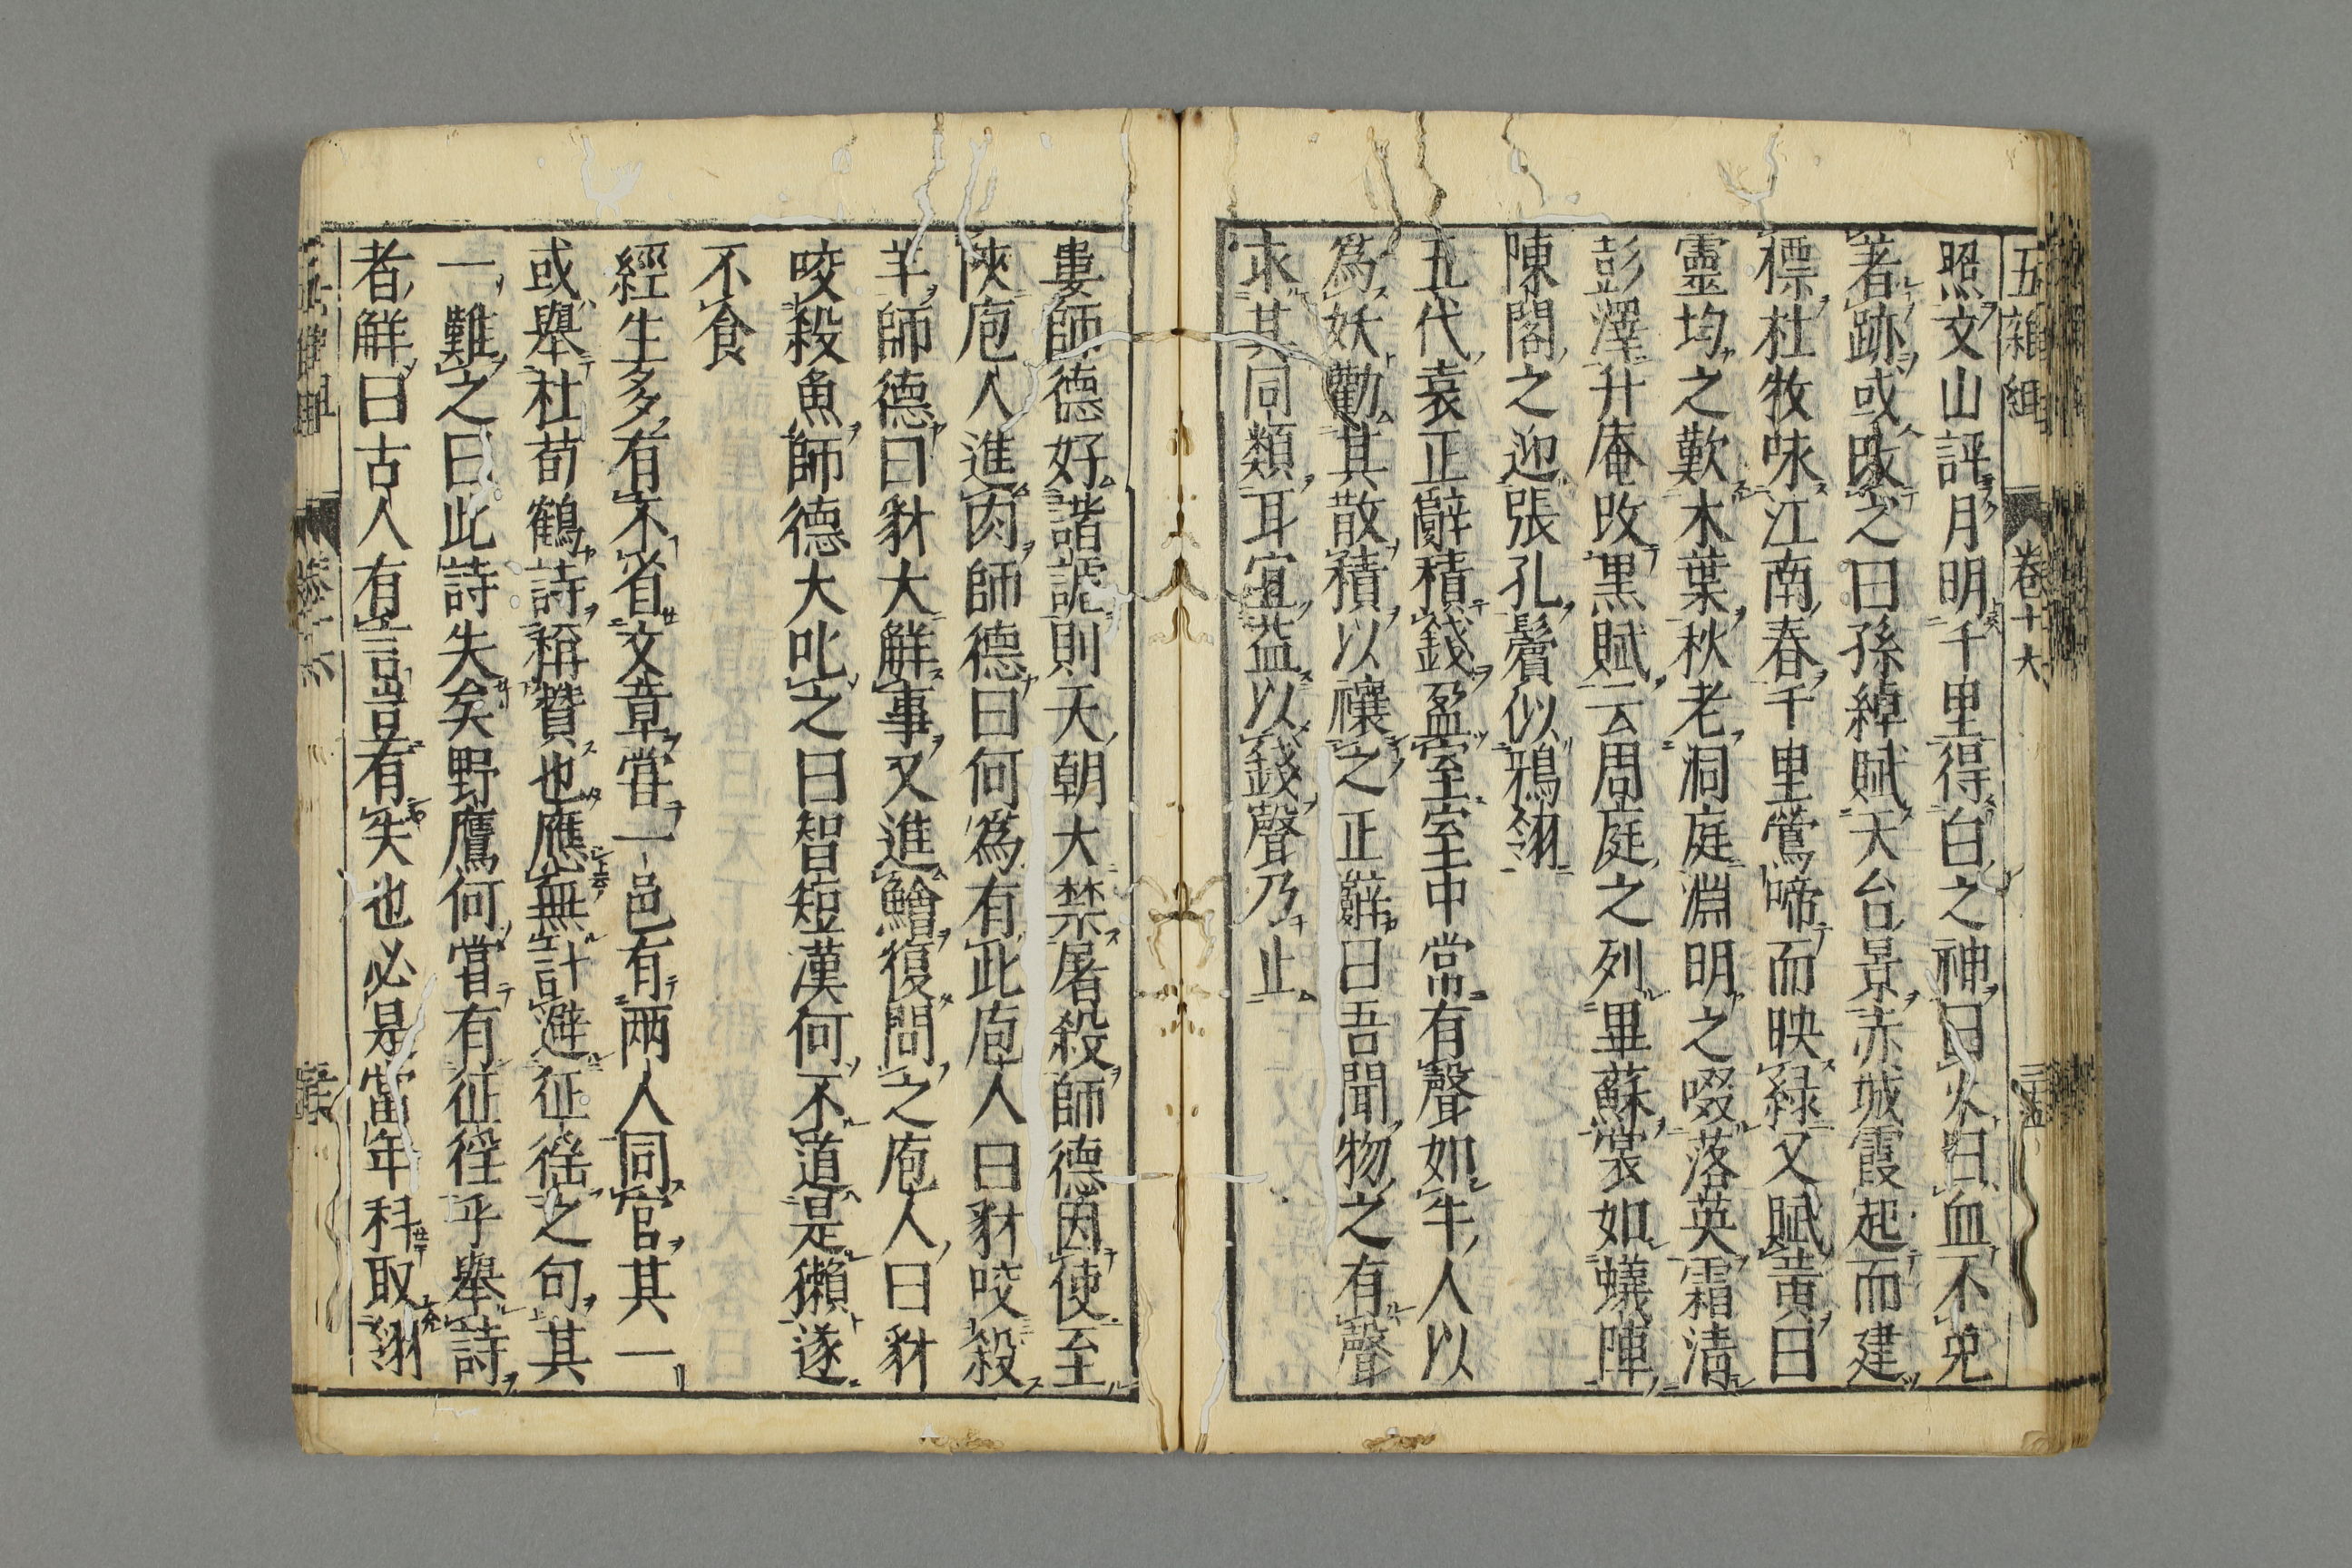 五雜組 卷十六
照文山評月明千里得白之神曰火曰血不免
著跡或改之曰孫綽賦天台景赤城霞起而建
標杜牧咏江南春千里鶯啼而映緑又賦黄曰
靈均之歎木葉秋老洞庭淵明之啜落英霜清
彭澤升庵改黒賦云周庭之列畢蘇裳如蟻陣
陳閣之迎張孔鬢似鴉翎
五代袁正辭積錢盈室室中常有聲如牛人以
為妖勸其散積以禳之正辭曰吾聞物之有聲
求其同類耳宜益以錢聲乃止
婁師德好諧謔則天朝大禁屠殺師德因使至
陝庖人進肉師德曰何為有此庖人曰豺咬殺
羊師德曰豺大觧事又進鱠復問之庖人曰豺
咬殺魚師德大叱之曰智短漢何不道是獺遂
不食
經生多有不省文章嘗一邑有两人同官其一
或舉杜荀鶴詩稱賛也應無計避征徭之句其
一難之曰此詩失矣野鷹何嘗有征徭乎舉詩
者觧曰古人有言豈有失也必是當年科取翎